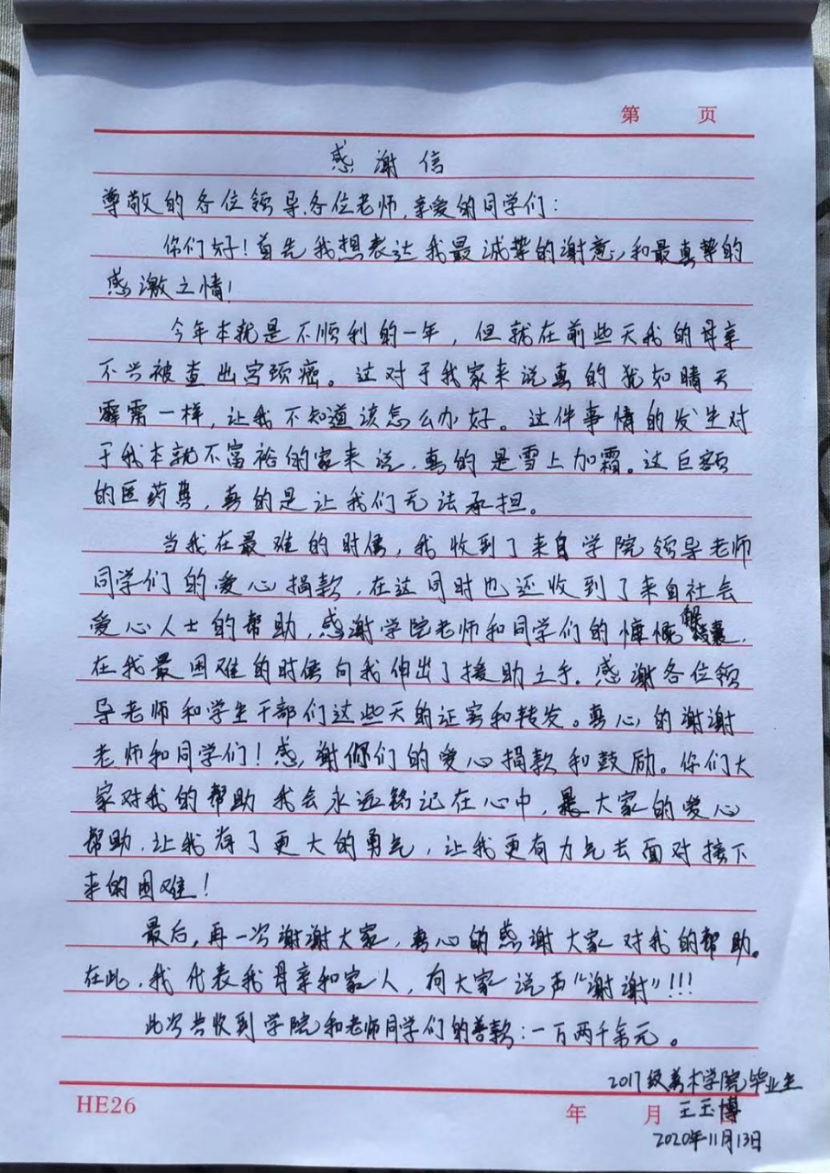 第 页
感谢信
尊敬的各位领导、各位老师,亲爱的同学们:
你们好!首先我想表达我最诚挚的谢意,和最真挚的
感激之情!
今年本就是不顺利的一年,但就在前些天我的母亲
不兴被查出宫颈癌。这对于我家来说真的犹如晴天
霹雳一样,让我不知道该怎么办好。这件事情的发生对
于我本就不富裕的家来说,真的是雪上加霜。这巨额
的医药费,真的是让我们无法承担。
当我在最难的时候,我收到了来自学院领导老师
同学们的爱心捐款,在这同时也还收到了来自社会
爱心人士的帮助,感谢学院老师和同学们的慷慨解囊,
在我最困难的时候向我伸出了援助之手。感谢各位领
导老师和学生干部们这些天的证实和转发。真心的谢谢
老师和同学们!感谢你们的爱心捐款和鼓励。你们大
家对我的帮助 我会永远铭记在心中,是大家的爱心
帮助,让我有了更大的勇气,让我更有力气去面对接下
来的困难!
最后,再一次谢谢大家,真心的感谢大家对我的帮助。
在此,我代表我母亲和家人,向大家说声“谢谢”!!!
此次共收到学院和老师同学们的善款:一百两千余元。
2017级美术学院毕业生
HE26 年 月 王玉博
2020年11月13日